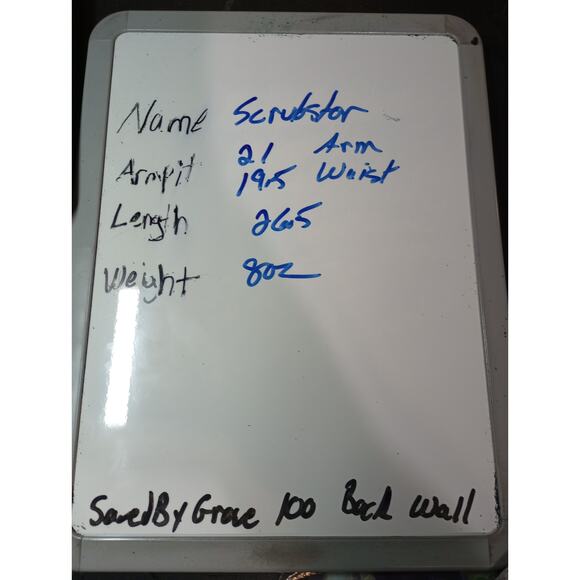 Name Scrubstar
Armpit 21 Arm
19.5 Waist
Length 26.5
Weight 8oz
SavedByGrace 100 Back Wall